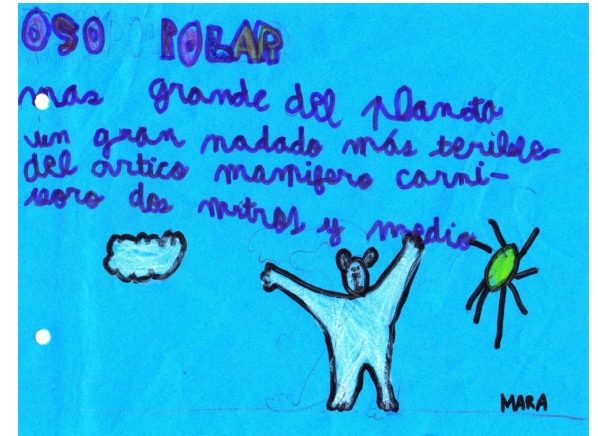 OSO POLAR
mas grande del planeta
un gran nadado más terible
del artico mamifero carni-
voro dos mitros y medio
MARA